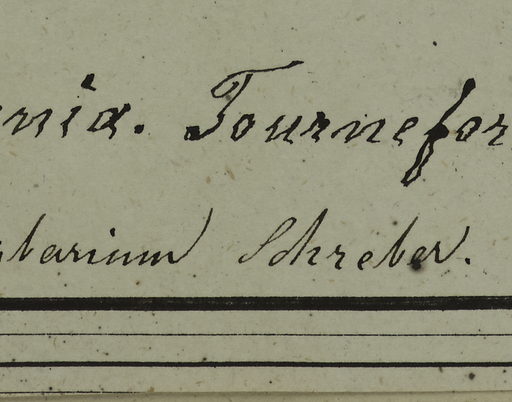 nia. Tournefor
rbarium Schreber.